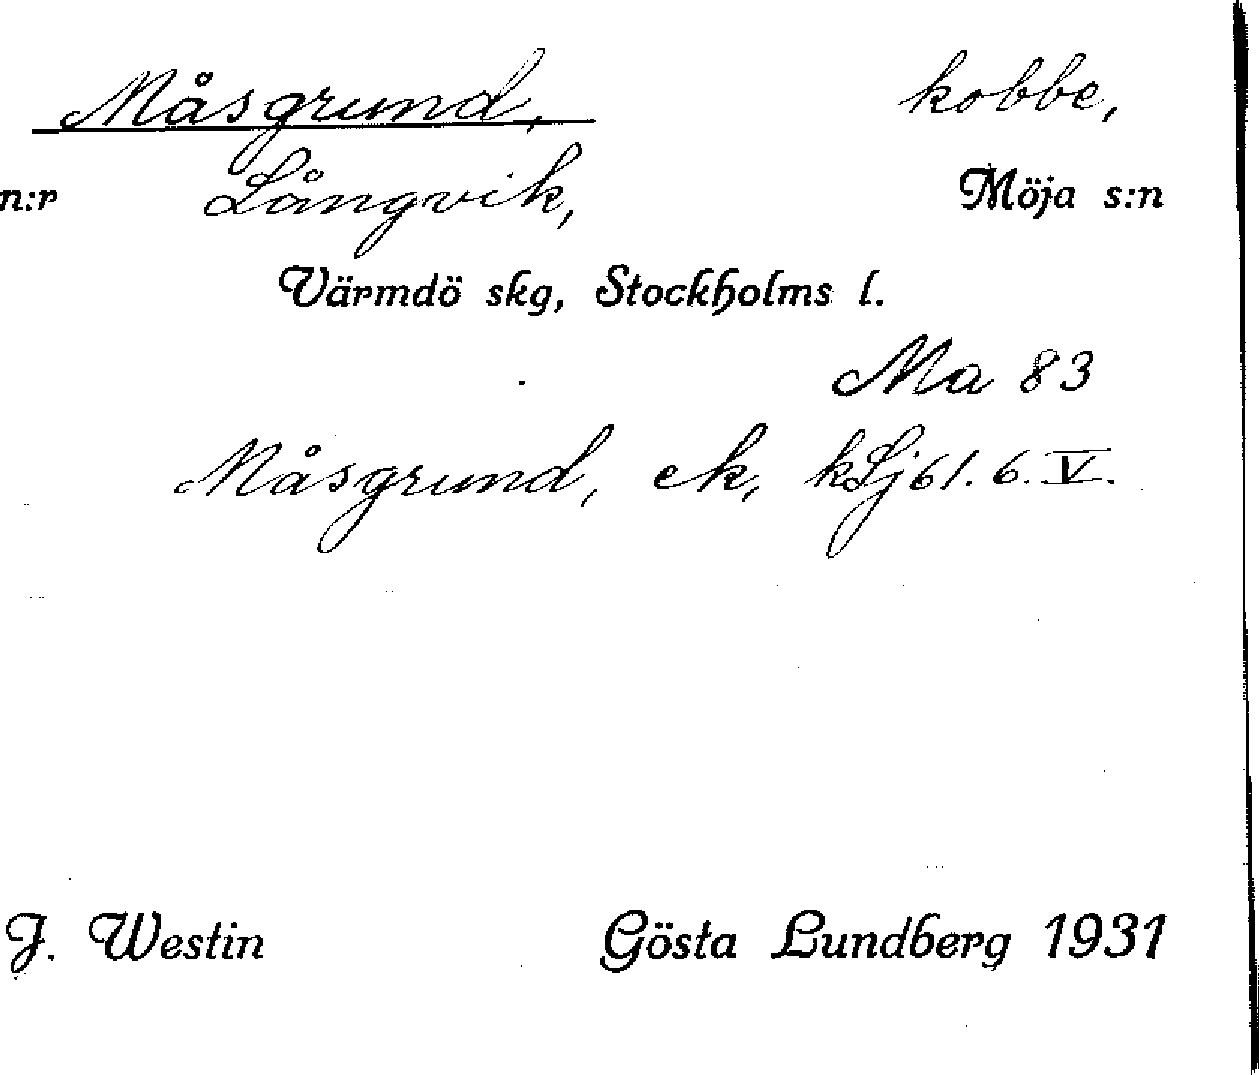 Måsgrund, kobbe,
n:r Långvik, Möja s:n
Värmdö skg, Stockholms l.
Ma 83
Måsgrund, ek, kSj 61. 6. V.
J. Westin Gösta Lundberg 1931